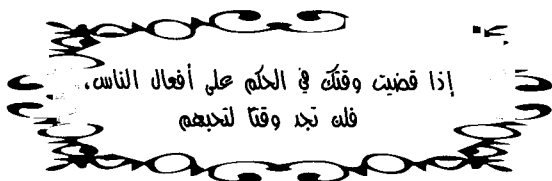 إذا قضيت وقتك في الحكم على أفعال الناس،
فلن تجد وقتًا لتحبهم